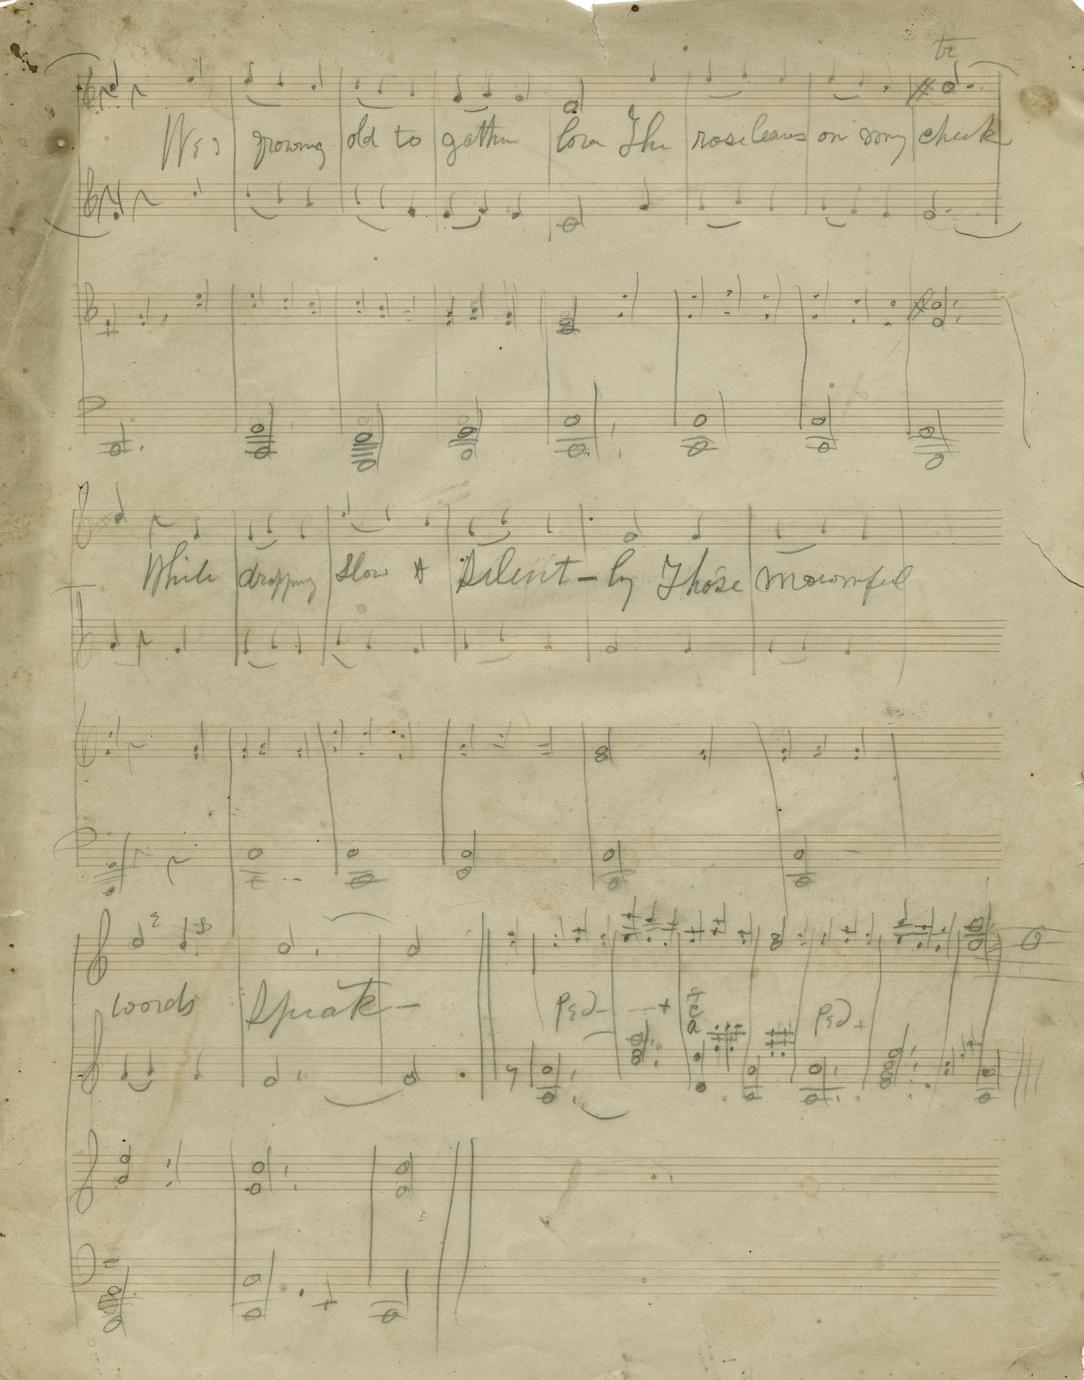 tr
growing old to gether love The rose leaves on my cheek
While dropping Slow & Silent - ly Those mournful
words Speak -
Ped - - +
Ped +